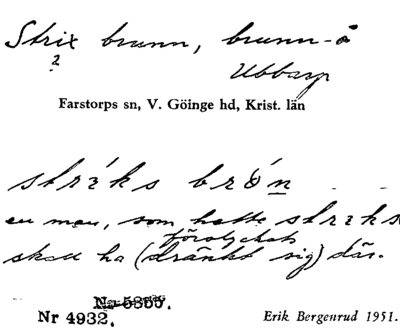 Strix brunn, brunn-å
?
Ubbarp
Farstorps sn, V. Göinge hd, Krist. län
strɪ́ks brón
en man, som hette strɪks
förolyckats
skall ha (dränkt sig) där.
No 5355.
Nr 4932.
Erik Bergenrud 1951.